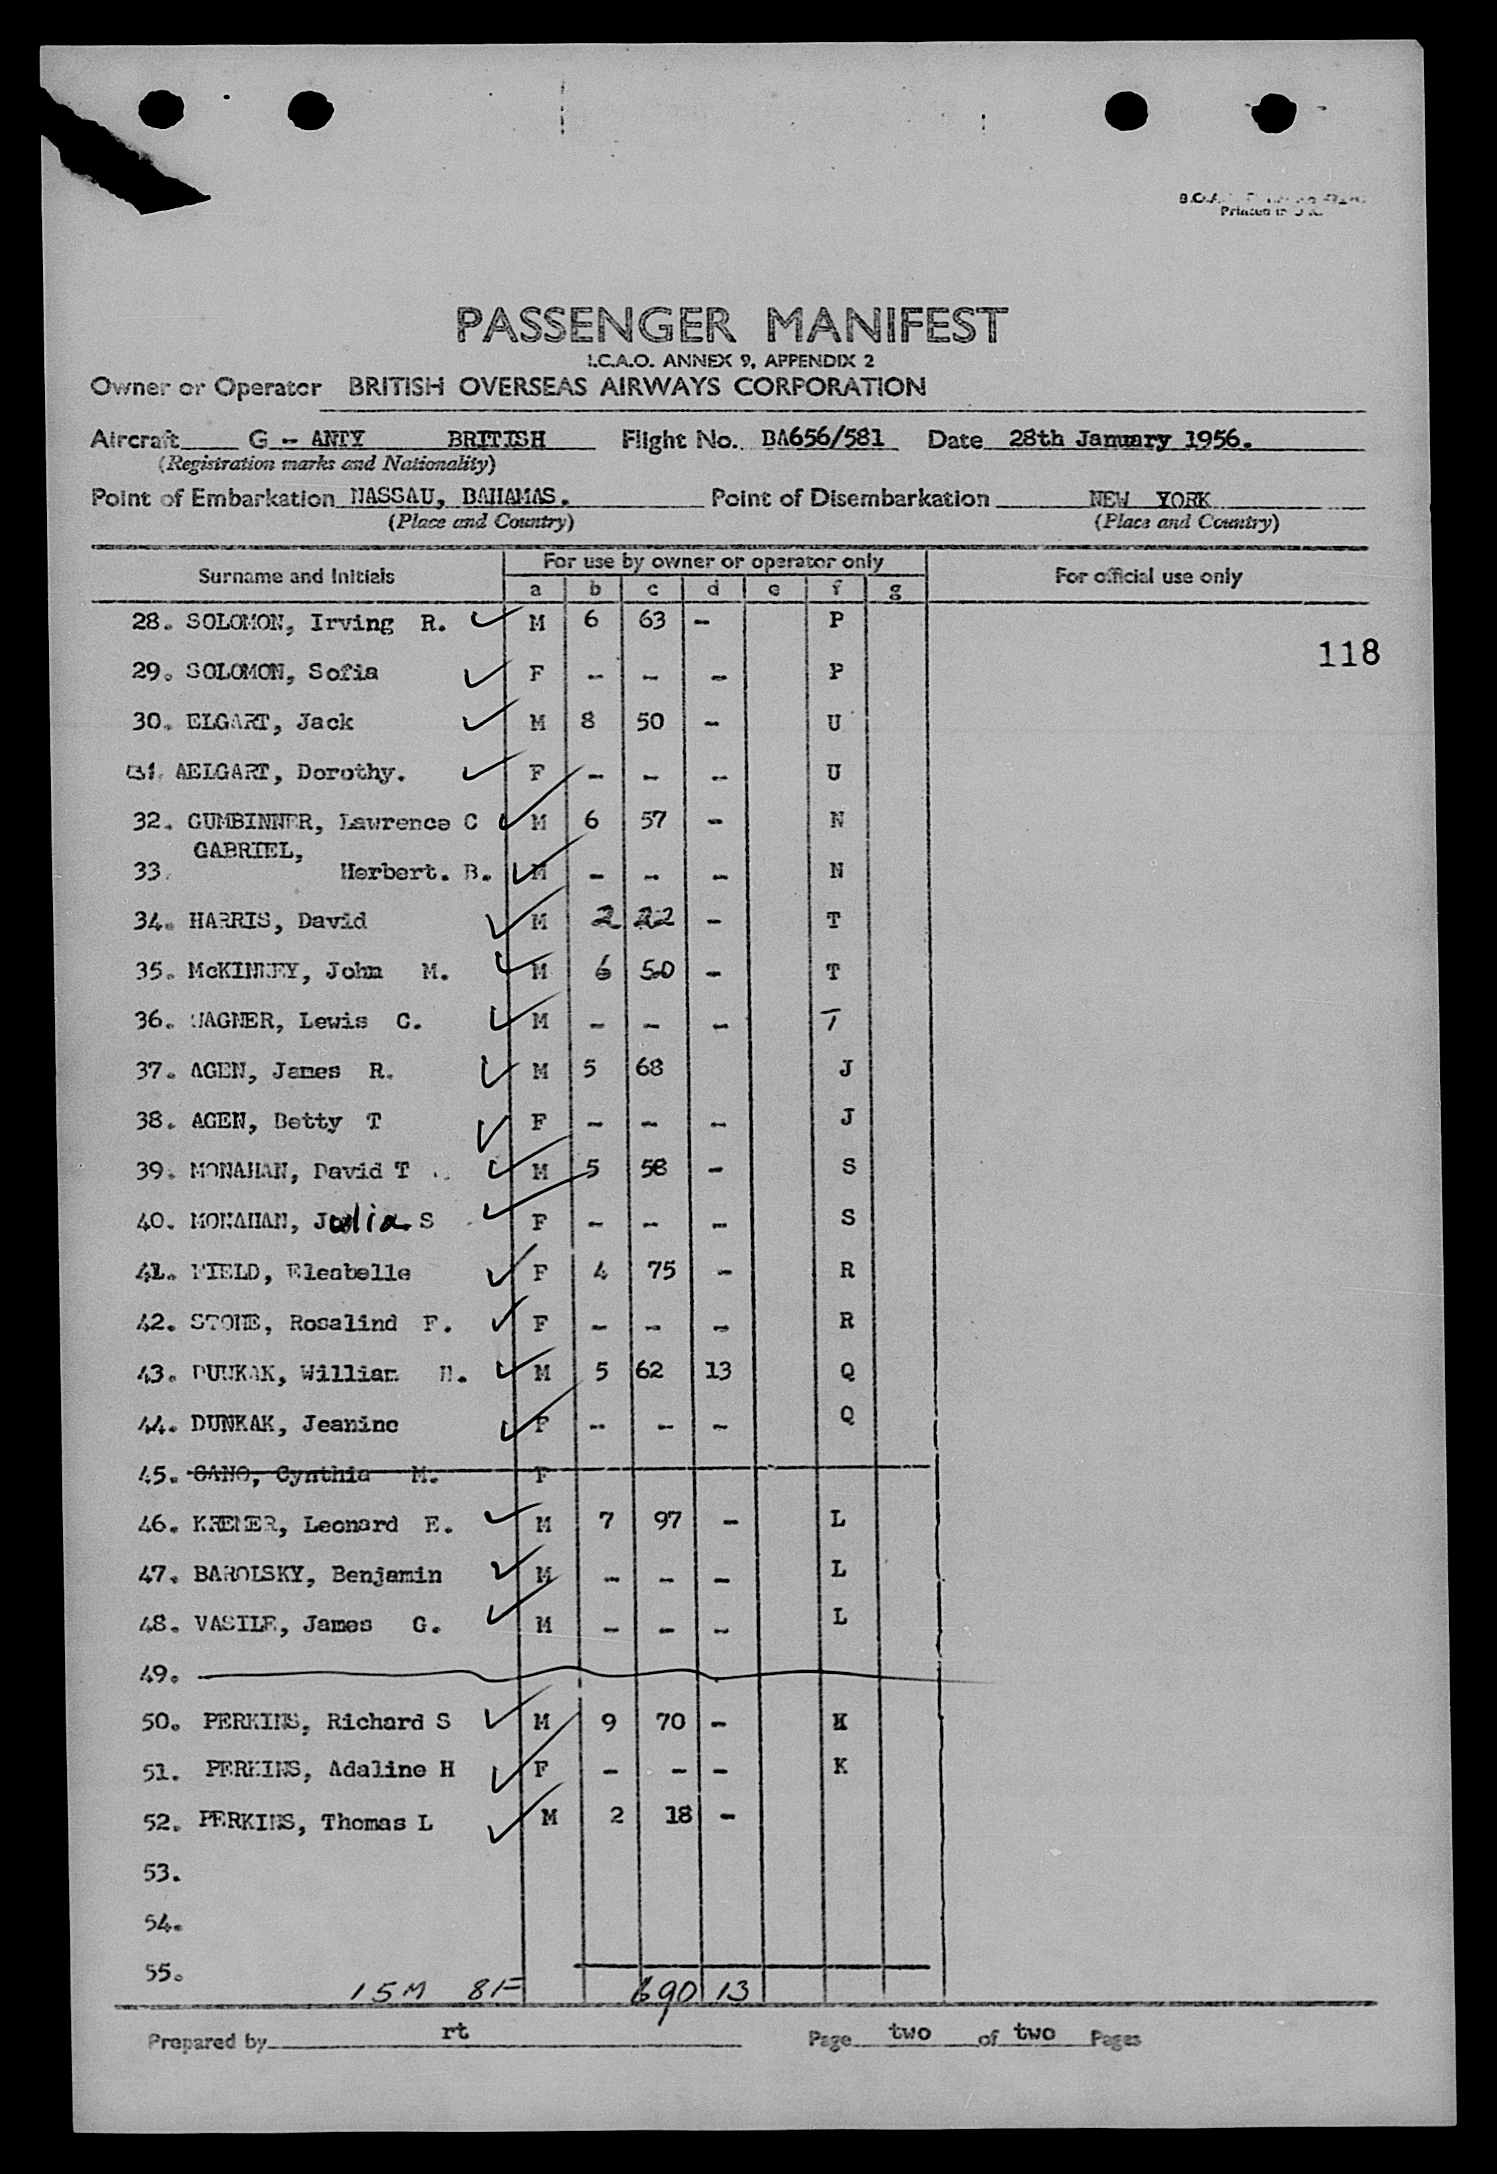 B.O.A.
Printed in U.K.
PASSENGER MANIFEST
I.C.A.O. ANNEX 9, APPENDIX 2
Owner or Operator BRITISH OVERSEAS AIRWAYS CORPORATION
Aircraft G -- ANTY BRITISH Flight No. BA656/581 Date 28th January 1956.
(Registration marks and Nationality)
Point of Embarkation NASSAU, BAHAMAS. Point of Disembarkation NEW YORK
(Place and Country) (Place and Country)
Surname and Initials For use by owner or operator only For official use only
a b c d e f g
28. SOLOMON, Irving R. ✓ M 6 63 - P
118
29. SOLOMON, Sofia ✓ F - - - P
30. ELGART, Jack ✓ M 8 50 - U
31. AELGART, Dorothy. ✓ F - - - U
32. GUMBINNER, Lawrence C ✓ M 6 57 - N
GABRIEL,
33. Herbert. B. ✓ M - - - N
34. HARRIS, David ✓ M 2 22 - T
35. McKINNEY, John M. ✓ M 6 50 - T
36. WAGNER, Lewis C. ✓ M - - - T
37. AGEN, James R. ✓ M 5 68 J
38. AGEN, Betty T ✓ F - - - J
39. MONAHAN, David T ✓ M 5 58 - S
40. MONAHAN, Julia S ✓ F - - - S
41. FIELD, Eleabelle ✓ F 4 75 - R
42. STONE, Rosalind F. ✓ F - - - R
43. DUNKAK, William H. ✓ M 5 62 13 Q
44. DUNKAK, Jeanine ✓ F - - - Q
45. CANO, Cynthia M. F
46. KREMER, Leonard E. ✓ M 7 97 - L
47. BAROLSKY, Benjamin ✓ M - - - L
48. VASILE, James G. ✓ M - - - L
49.
50. PERKINS, Richard S ✓ M 9 70 - K
51. PERKINS, Adaline H ✓ F - - - K
52. PERKINS, Thomas L ✓ M 2 18 -
53.
54.
55.
15M 8F 690 13
Prepared by rt Page two of two Pages